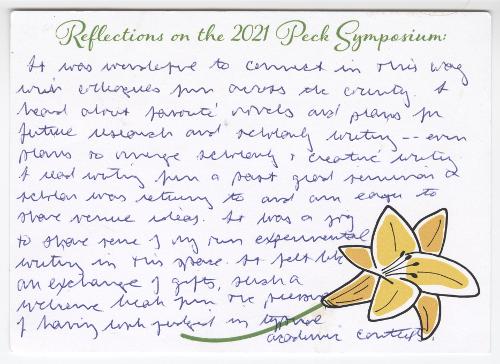 Reflections on the 2021 Peck Symposium:
It was wonderful to connect in this way
with colleagues from across the country. I
heard about favorite novels and plans for
future research and scholarly writing -- even
plans to merge scholarly & creative writing.
I used writing from a past grad seminar a
scholar was returning to and am eager to
share venue ideas. It was a joy
to share some of my own experimental
writing in this space. It felt like
an exchange of gifts, such a
welcome break from the pressure
of having work judged in typical
academic contexts.